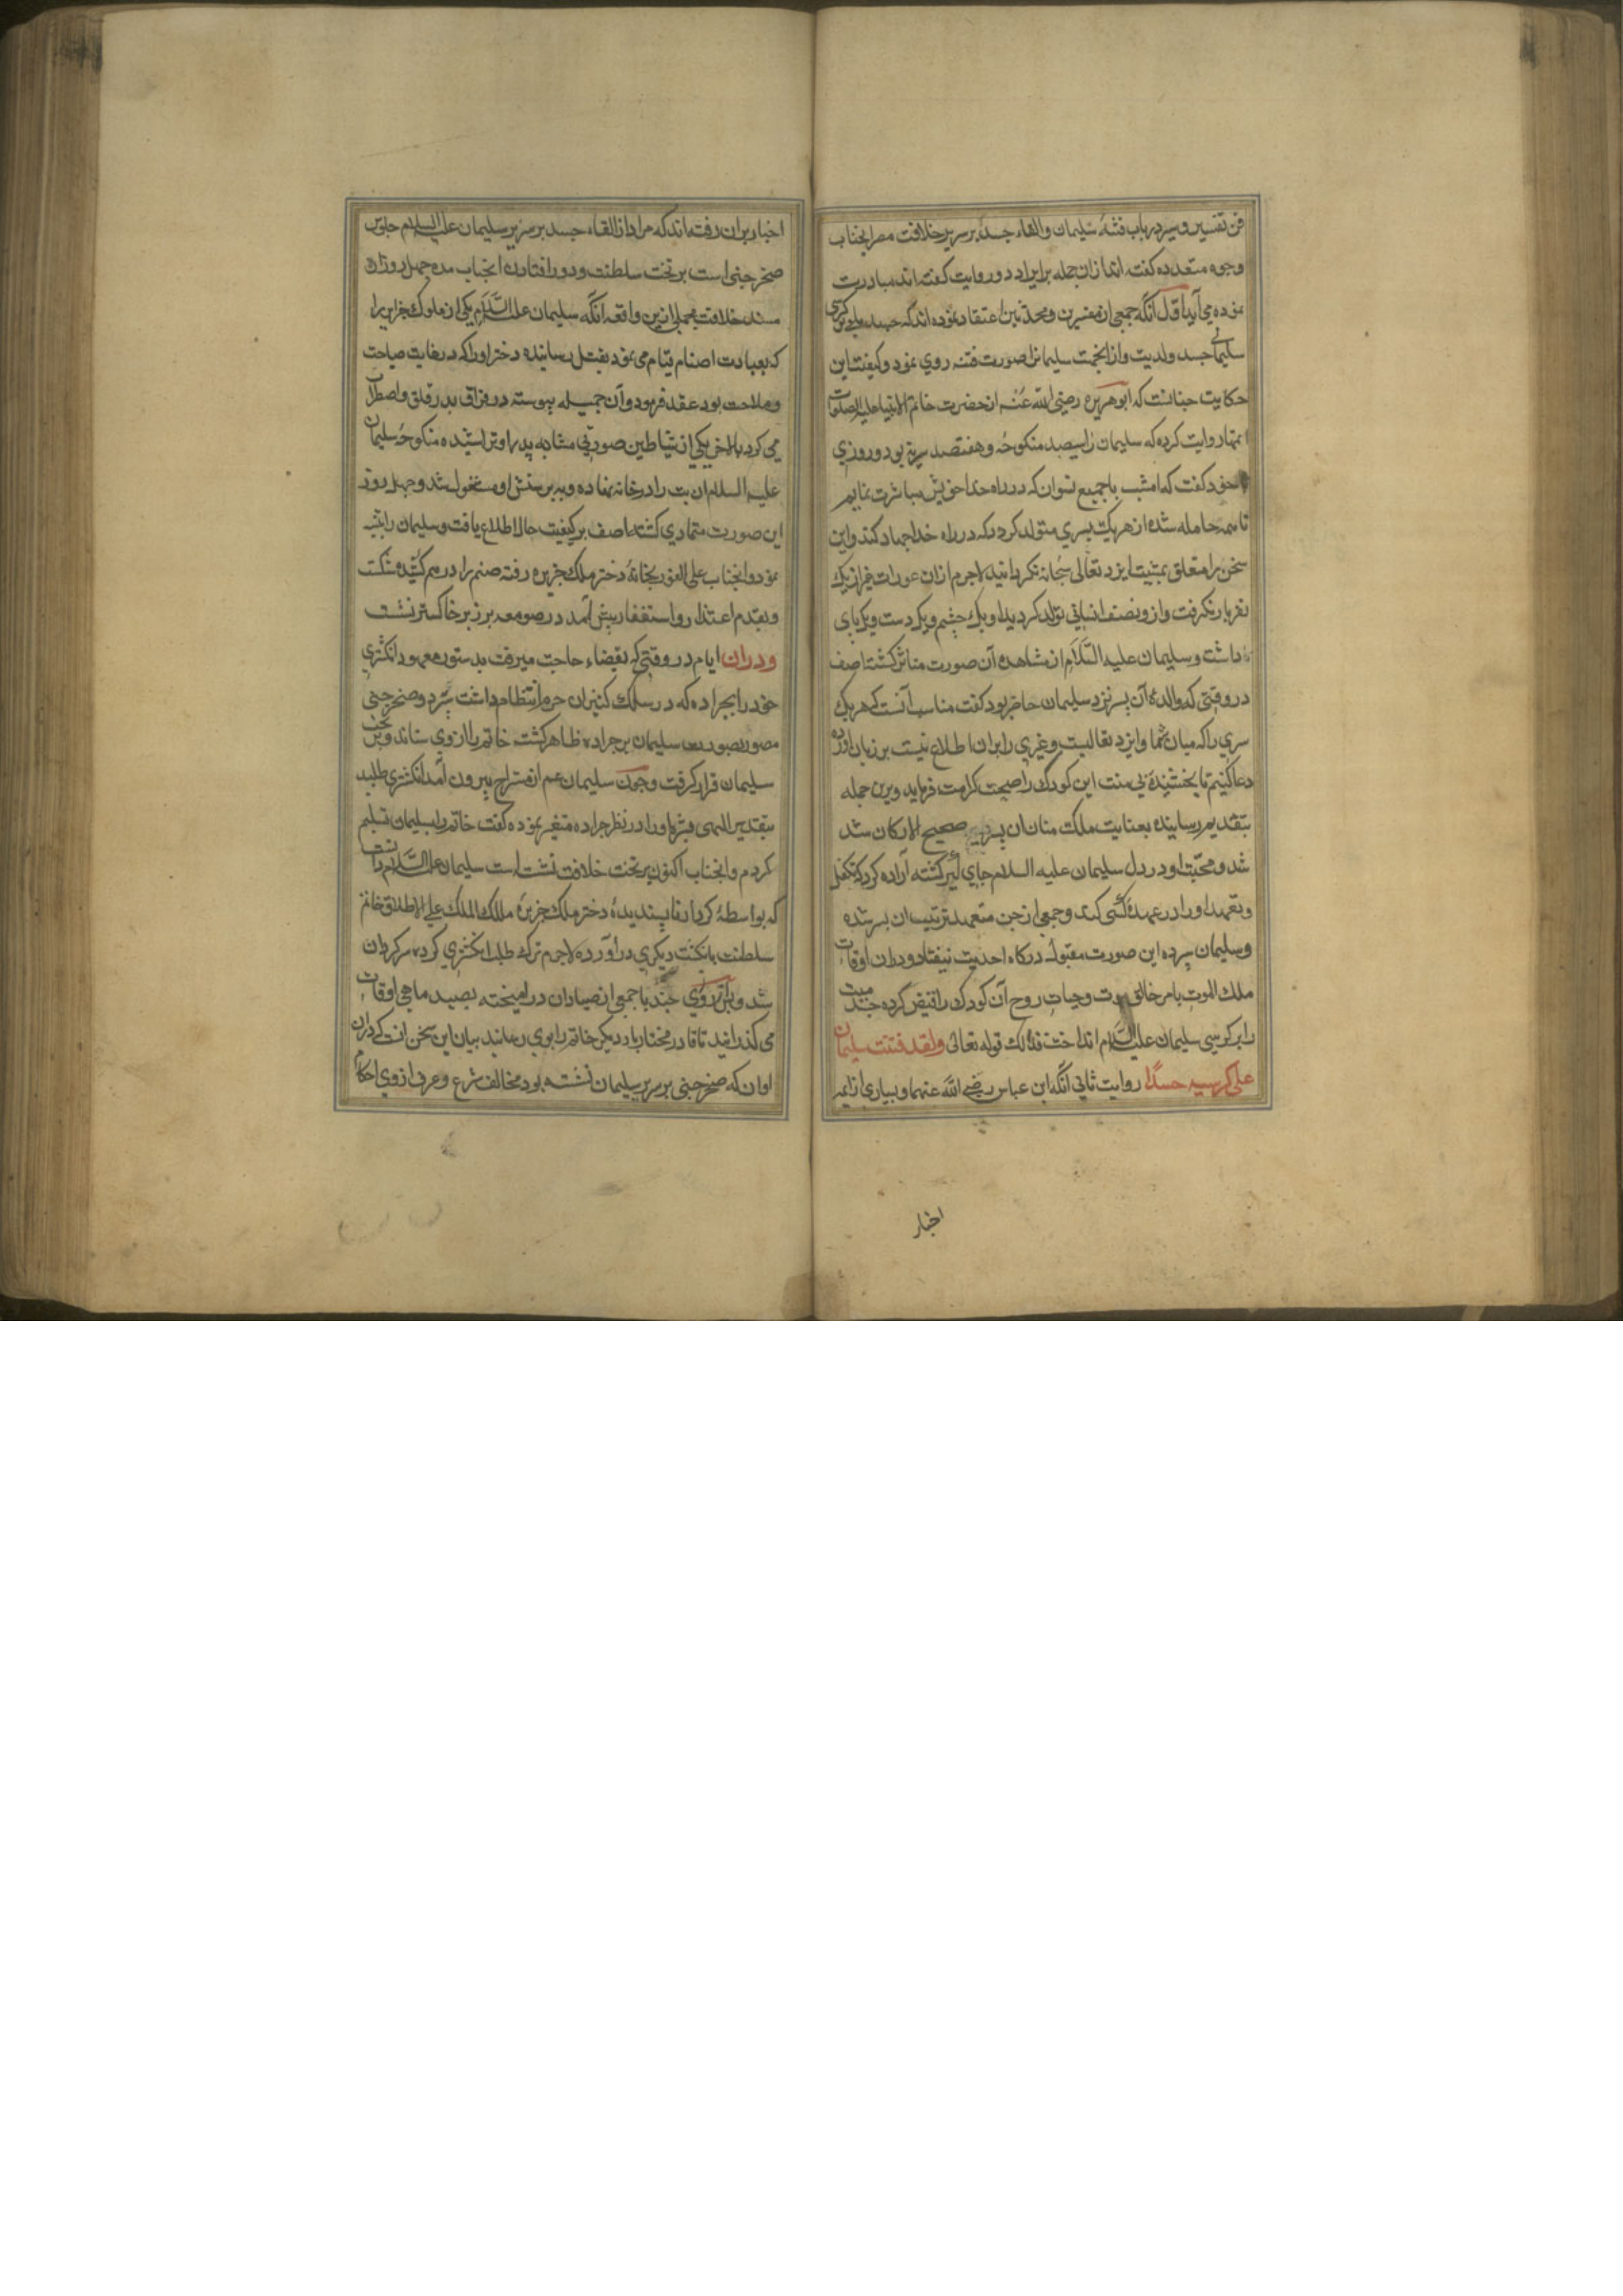 فن تفسیر و سیر در باب فتنهٔ سلیمان و القاء جسد بر سریر خلافت مصر آنجناب
وجوه متعدده گفته اند ازان جمله برایراد دو روایت گفته اند مبادرت
نموده می آید اول آنکه جمعی از مفسرین و محدثین اعتقاد نموده اند که جسد کرسی
سلیمانی جسد ولدیت و از انجهت سلیمانرا صورت فتنه روی نمود و کیفیت این
حکایت چنانست که ابو هریره رضی الله عنه از حضرت خاتم الانبیا علیه الصلوات
روایت کرده که سلیمان را سیصد منکوحه و هفتصد سریه بود و روزی
خود گفت که امشب با جمیع نسوان که در راه خدا خویش مباشرت نمایم
تا همه حامله شده از هر یک پسری متولد کردد که در راه خدا جهاد کند و این
سخن را متعلق بمشیت ایزد تعالی سبحانه نکردانید لاجرم ازان عورات غیر از یک
نفر بار نکرفت و ازو نصف انسانی تولد کردید او یک چشم و یک دست و یک پای
داشت و سلیمان علیه السلام از مشاهده آن صورت متاثر کشته اصف
در وقتی که والدهٔ آن پسر نزد سلیمان حاضر بود کفت مناسب آنست که هر یک
سری را که میان شما و ایزد تعالیست و غیری را بران اطلاع نیست بر زبان اورده
دعا کنیم تا بخشنیدهٔ بی منت این کودک را صحت کرامت فرماید و برین جمله
بتقدیم رسانیده بعنایت ملک منان ان پسر صحیح الارکان شد
شد و محبت او در دل سلیمان علیه السلام جای کیر کشته اراده کرد که تکفل
و تعهد او را در عهدهٔ کسی کند و جمعی از جن متعهد تربیت ان پسر شده
و سلیمان سپرده این صورت مقبول درکاه احدیت نیفتاد و دران اوقات
ملک الموت بامر خالق موت و حیات روح آن کودک را قبض کرده جسد میت
را بر کرسی سلیمان علیه السلام انداخت فذلک قوله تعالی ولقد فتنت سلیمان
علی کرسیه جسدا روایت ثانی آنکه ابن عباس رضی الله عنهما و بسیاری از ایمه
اخبار
اخبار بران رفته اند که مراد از القاء جسد بر سریر سلیمان علیه السلام جلوس
صخر جنی است بر تخت سلطنت و دور افتادن انجناب مده چهل روز از
مسند خلافت مجملی ازین واقعه انکه سلیمان علیه السلام یکی از ملوک جزایر را
که بعبادت اصنام قیام می نمود بقتل رسانیده دختر او را که در غایت صباحت
و ملاحت بود عقد فرمود و آن جمیله پیوسته در فراق پدر قلق و اضطراب
می کرد بالاخر یکی از شیاطین صورتی مشابه پدر او تراشیده منکوحهٔ سلیمان
علیه السلام ان بت را در خانه نهاده و به پرستش او مشغول شد و چهل روز
این صورت متمادی کشته اصف بر کیفیت حال اطلاع یافت و سلیمان را تنبیه
نمود و انجناب علی الفور بخانهٔ دختر ملک جزیره رفته صنم را درهم شکست
و بقدم اعتذار و استغفار پیش آمد در صومعه بر زبر خاکستر نشست
و دران ایام در وقتی که بقضاء حاجت میرفت بدستور معهود انکشتری
خود را بجراده که در سلک کنیزان حرم انتظام داشت سپرد و صخر جنی
مصور بصورت سلیمان بر جراده ظاهر کشته خاتم را از وی ستاند و بر تخت
سلیمان قرار کرفت و چون سلیمان عم از مستراح بیرون آمد انکشتری طلبید
بتقدیر الهی بشرهٔ او را در نظر جراده متغیر نموده کفت خاتم را بسلیمان تسلیم
کردم و انجناب اکنون بر تخت خلافت نشسته است سلیمان علیه السلام دانست
که بواسطهٔ کردار ناپسندیدهٔ دختر ملک جزیره مالک الملک علی الاطلاق خاتم
سلطنت بانکشت دیکری در آورده لاجرم ترک طلب انکشتری کرده سرکردان
شد و پس روزی چند با جمعی از صیادان در امیخته بصید ماهی اوقات
می کذرانید تا قادر مختار بار دیکر خاتم را بوی رسانید بیان این سخن انست که دران
اوان که صخر جنی بر سریر سلیمان نشسته بود مخالف شرع و عرف از وی احکام